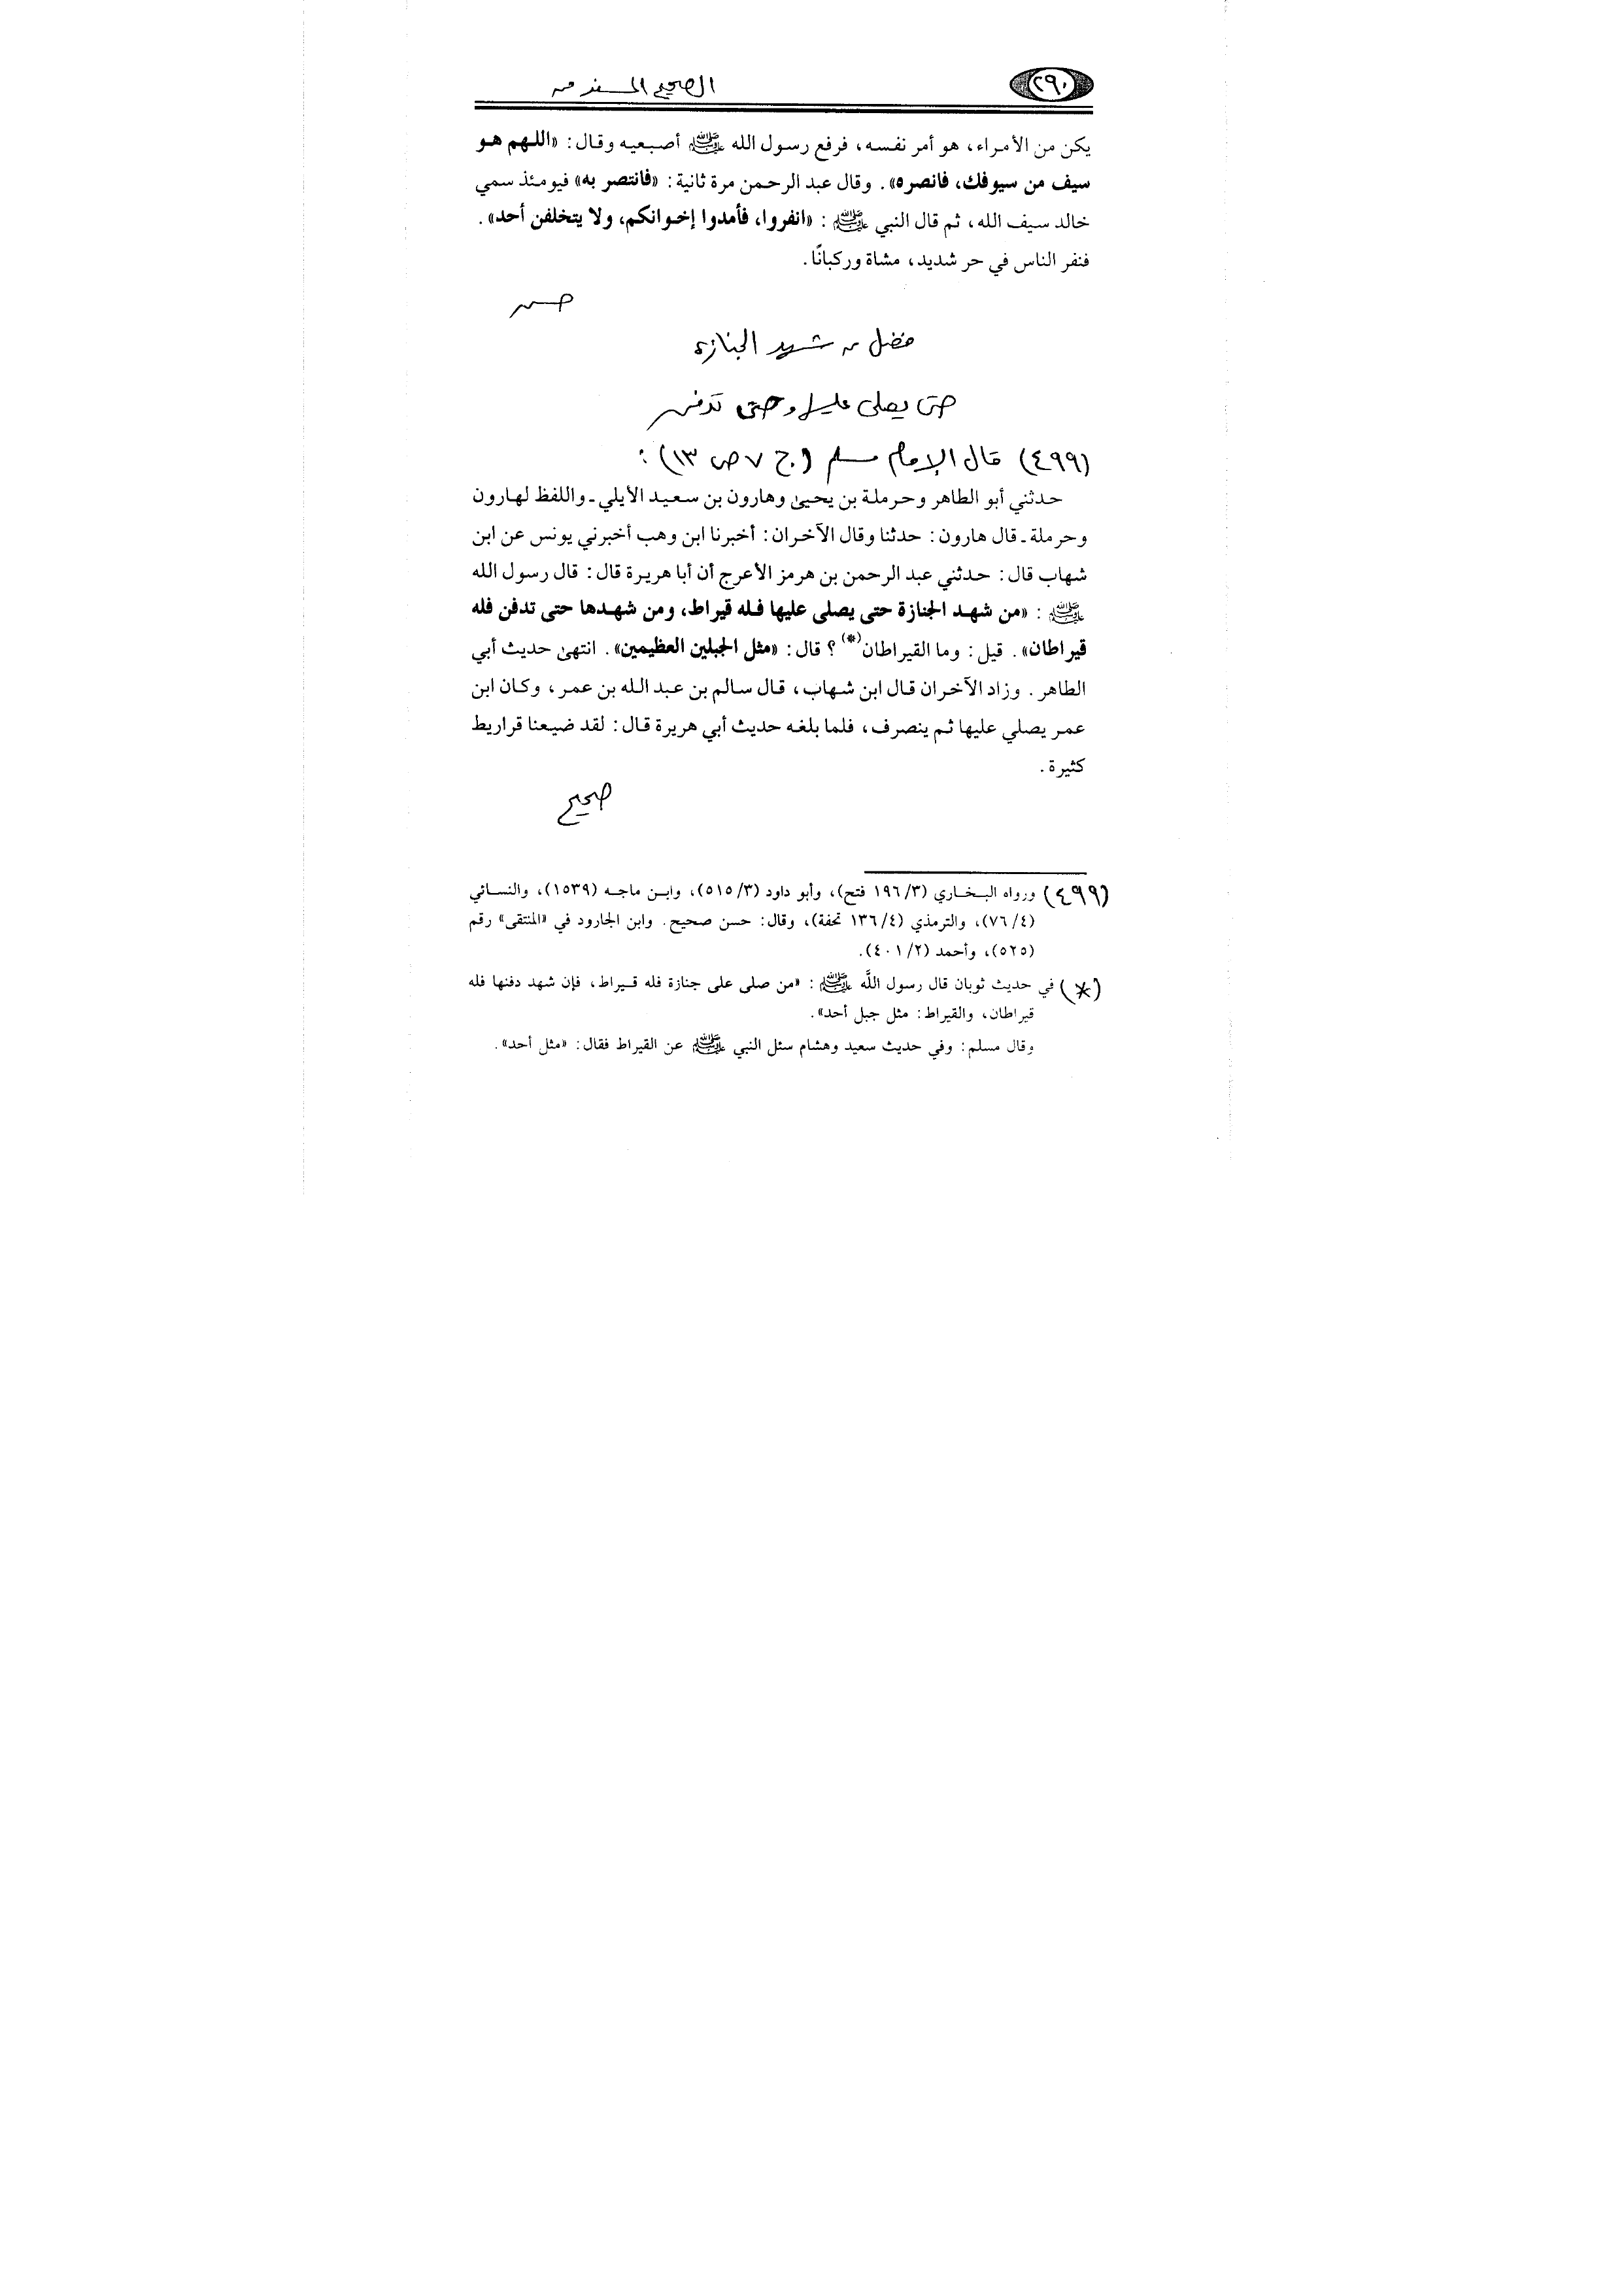 ٢٩٠
الصحيح المسند من
يكن من الأمراء، هو أمر نفسه، فرفع رسول الله ﷺ أصبعيه وقال: «اللهم هو
سيف من سيوفك، فانصره». وقال عبد الرحمن مرة ثانية: «فانتصر به» فيومئذ سمي
خالد سيف الله، ثم قال النبي ﷺ: «انفروا، فأمدوا إخوانكم، ولا يتخلفن أحد».
فنفر الناس في حر شديد، مشاة وركبانًا.
حسن
فضل من شهد الجنازة
حتى يصلى عليها وحتى تدفن
(٤٩٩) قال الإمام مسلم (ج ٧ ص ١٣):
حدثني أبو الطاهر وحرملة بن يحيىٰ وهارون بن سعيد الأيلي ـ واللفظ لهارون
وحرملة ـ قال هارون: حدثنا وقال الآخران: أخبرنا ابن وهب أخبرني يونس عن ابن
شهاب قال: حدثني عبد الرحمن بن هرمز الأعرج أن أبا هريرة قال: قال رسول الله
ﷺ: «من شهد الجنازة حتى يصلى عليها فله قيراط، ومن شهدها حتى تدفن فله
قيراطان». قيل: وما القيراطان(*)؟ قال: «مثل الجبلين العظيمين». انتهىٰ حديث أبي
الطاهر. وزاد الآخران قال ابن شهاب، قال سالم بن عبد الله بن عمر، وكان ابن
عمر يصلي عليها ثم ينصرف، فلما بلغه حديث أبي هريرة قال: لقد ضيعنا قراريط
كثيرة.
صحيح
(٤٩٩) ورواه البخاري (١٩٦/٣ فتح)، وأبو داود (٥١٥/٣)، وابن ماجه (١٥٣٩)، والنسائي
(٧٦/٤)، والترمذي (١٣٦/٤ تحفة)، وقال: حسن صحيح. وابن الجارود في «المنتقى» رقم
(٥٢٥)، وأحمد (٤٠١/٢).
(*) في حديث ثوبان قال رسول اللَّه ﷺ: «من صلى على جنازة فله قيراط، فإن شهد دفنها فله
قيراطان، والقيراط: مثل جبل أحد».
وقال مسلم: وفي حديث سعيد وهشام سئل النبي ﷺ عن القيراط فقال: «مثل أحد».